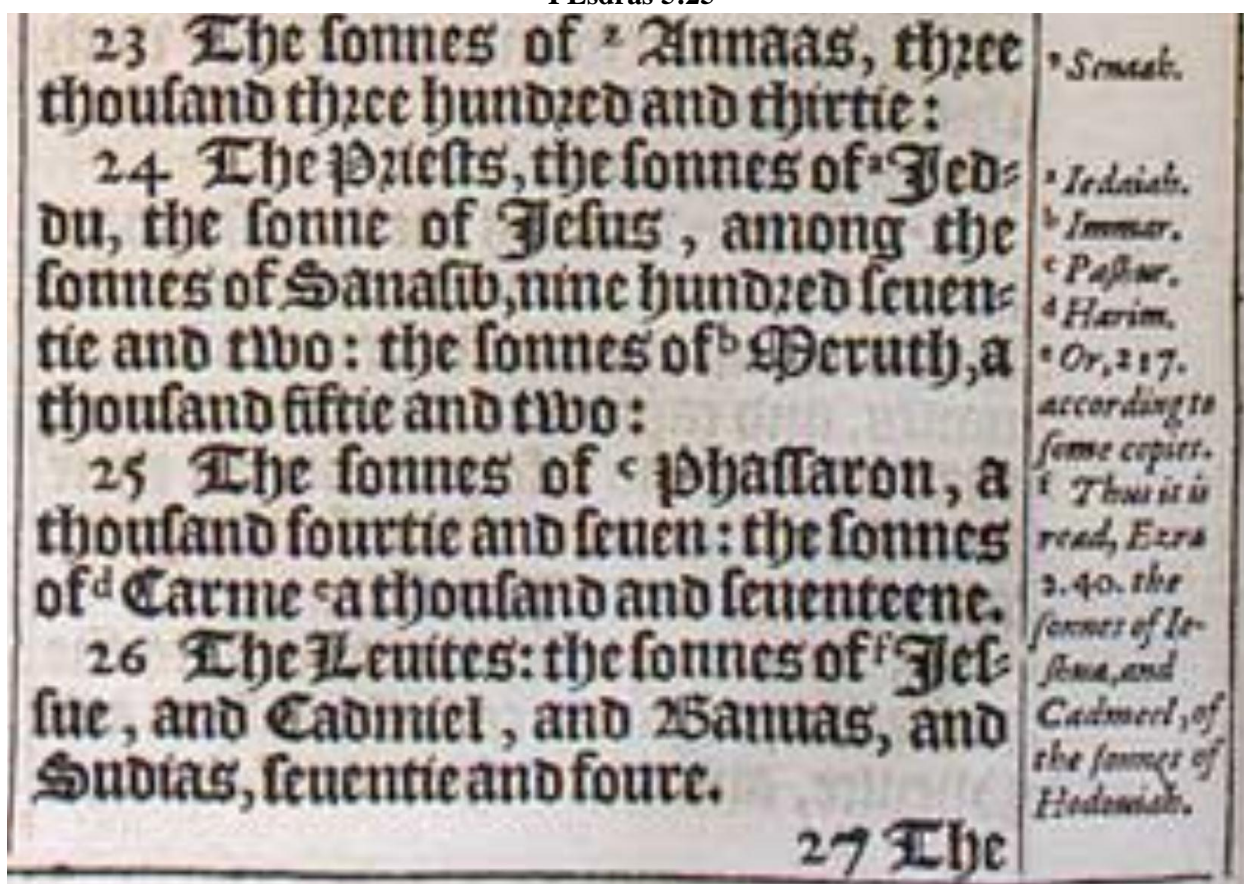 1 Esdras 5:25
23 The ſonnes of z Annaas, three
thouſand three hundred and thirtie:
24 The Prieſts, the ſonnes of a Jed-
du, the ſonne of Jeſus, among the
ſonnes of Sanaſib, nine hundred ſeuen-
tie and two: the ſonnes of b Meruth, a
thouſand fiftie and two:
25 The ſonnes of c Phaſſaron, a
thouſand fourtie and ſeuen: the ſonnes
of d Carme e a thouſand and ſeuenteene.
26 The Leuites: the ſonnes of f Jeſ-
ſue, and Cadmiel, and Banuas, and
Sudias, ſeuentie and foure.
27 The
z Senaah.
a Iedaiah.
b Immer.
c Paſhur.
d Harim.
e Or, 217.
according to
ſome copies.
f Thus it is
read, Ezra
2.40. the
ſonnes of Ie-
ſhua, and
Cadmeel, of
the ſonnes of
Hodouiah.